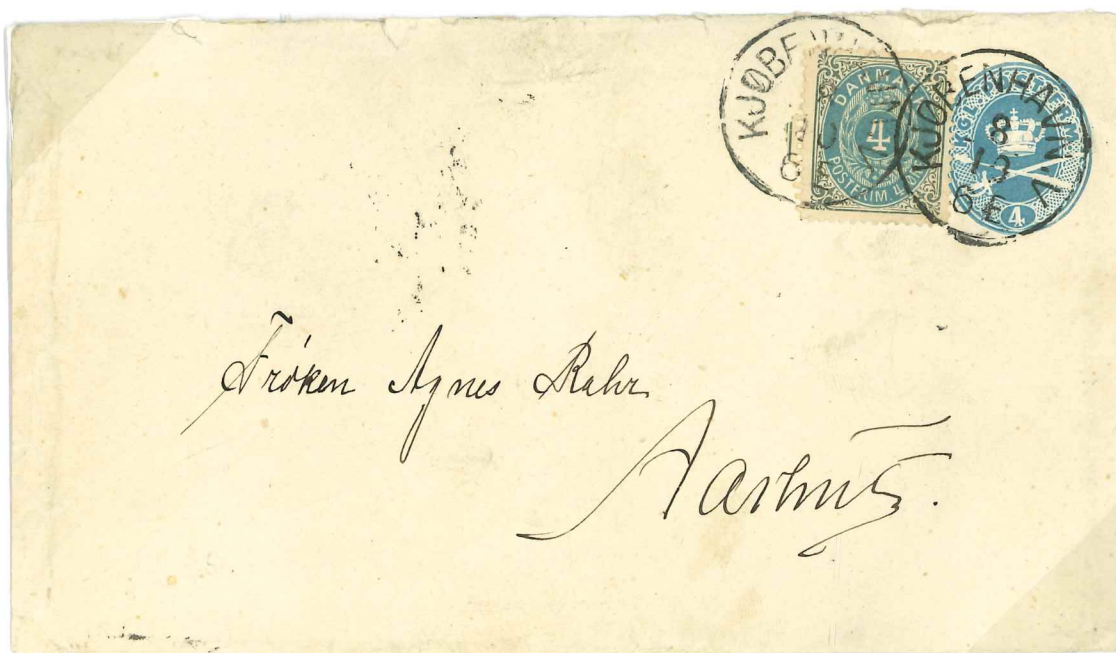 KJØBENHAVN
DANMARK
4
POSTFRIM.
KJØBENHAVN V
8
19
6 E
4
Frøken Agnes Rahr
Aarhus.